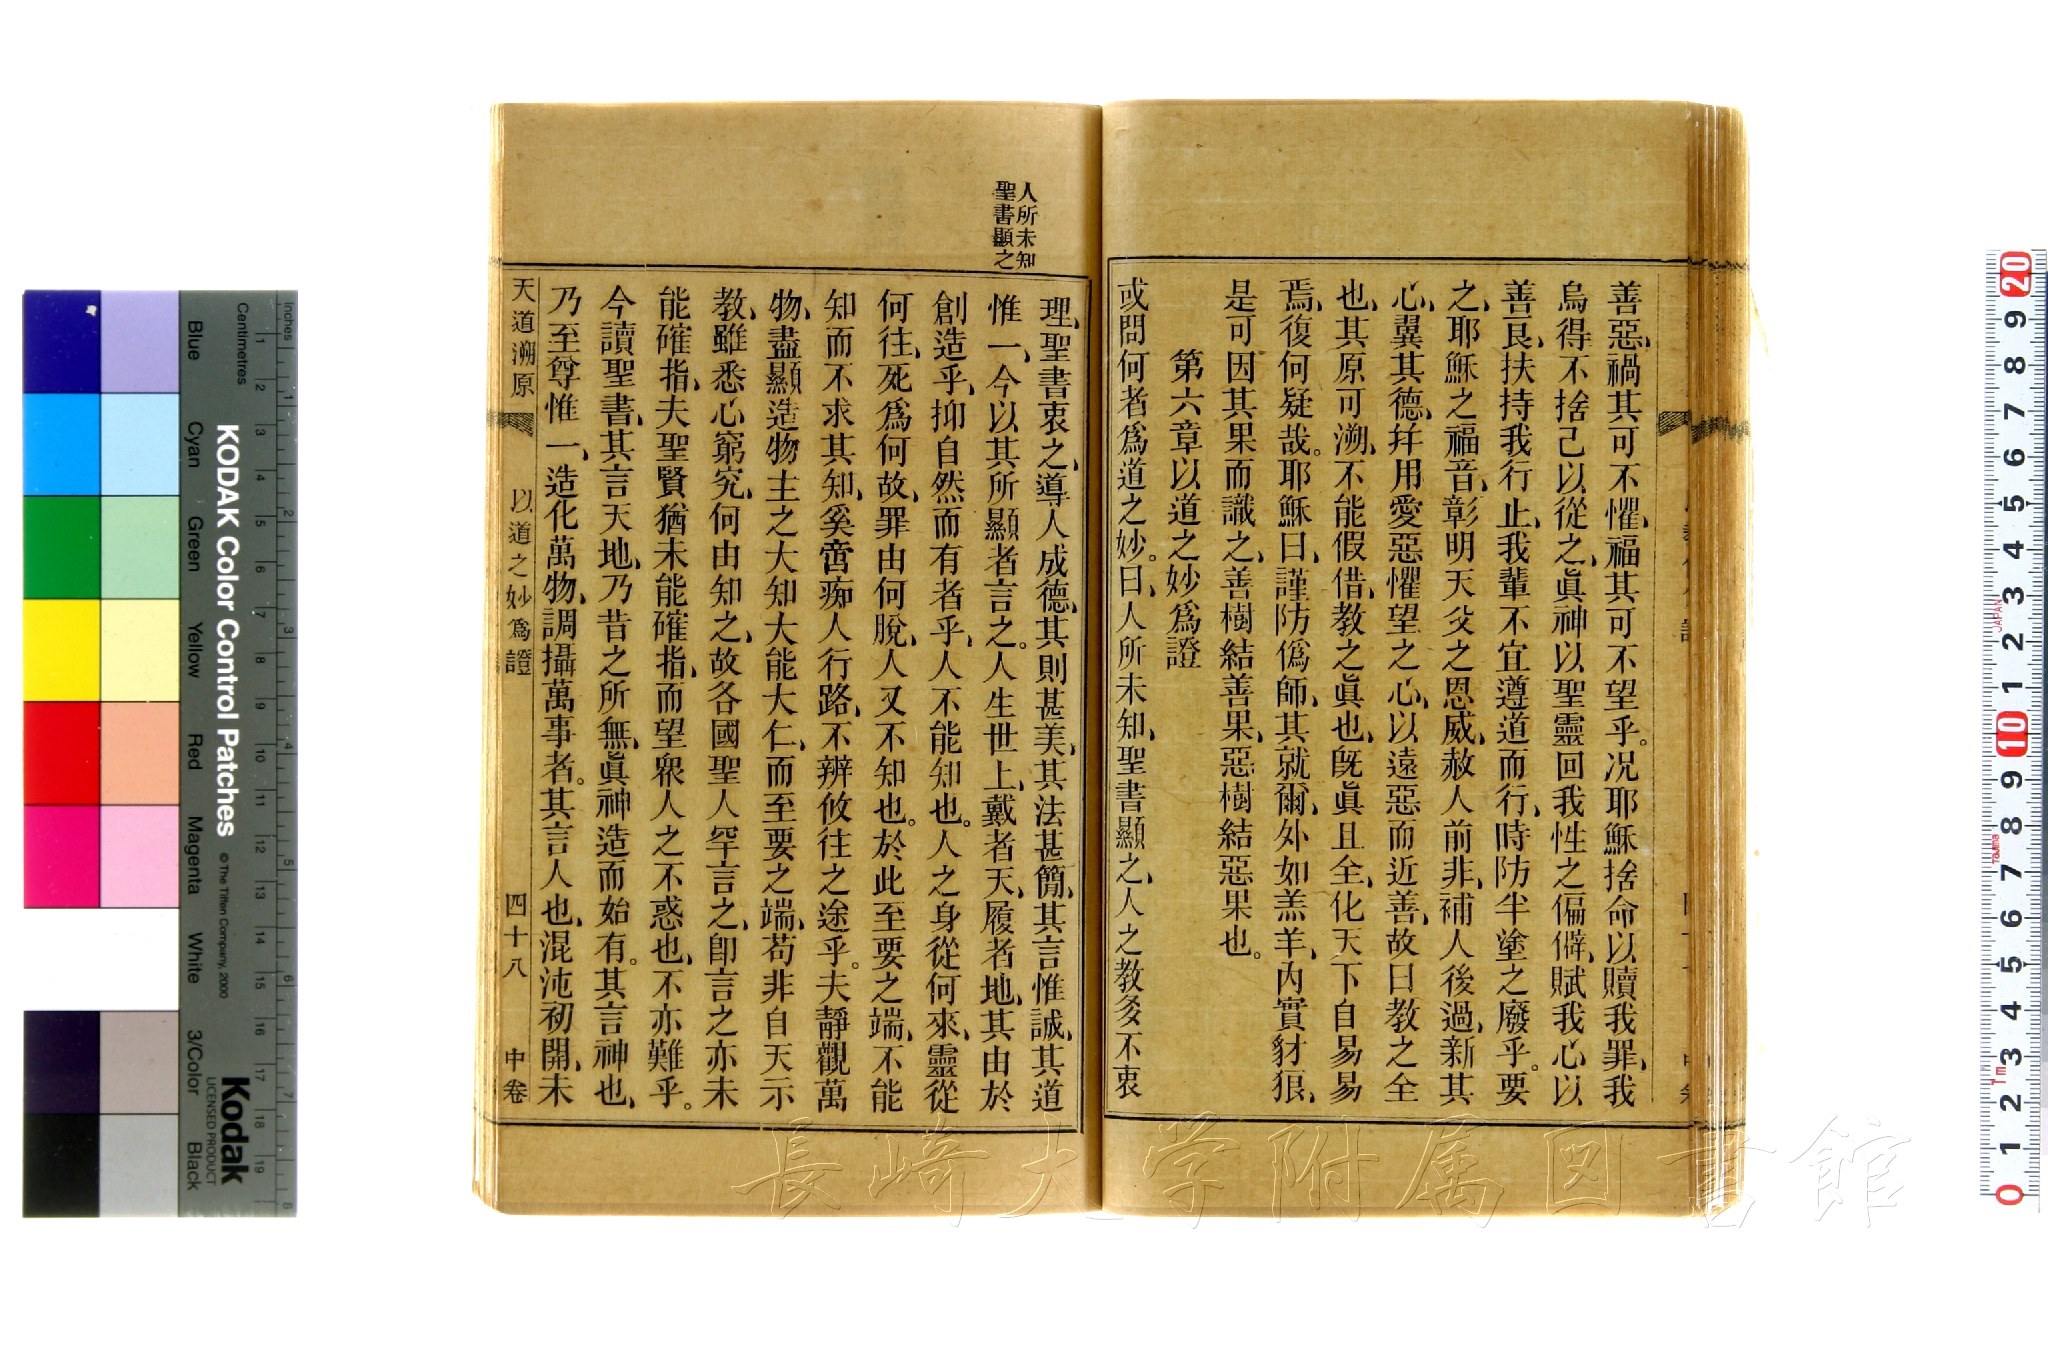 善惡、禍其可不懼、福其可不望乎。况耶穌捨命以贖我罪、我
烏得不捨己以從之、眞神以聖靈回我性之偏僻、賦我心以
善艮、扶持我行止、我輩不宜遵道而行、時防半塗之廢乎。要
之、耶穌之福音、彰明天父之恩威、赦人前非、補人後過、新其
心、翼其德、幷用愛惡懼望之心、以遠惡而近善、故曰教之全
也、其原可溯、不能假借、教之眞也、旣眞且全、化天下自易易
焉、復何疑哉。耶穌曰、謹防僞師、其就爾、外如羔羊、內實豺狼、
是可因其果而識之、善樹結善果、惡樹結惡果也。
第六章以道之妙爲證
或問何者爲道之妙。曰、人所未知、聖書顯之、人之教多不衷
人所未知
聖書顯之
理、聖書衷之、導人成德、其則甚美、其法甚簡、其言惟誠、其道
惟一、今以其所顯者言之。人生世上、戴者天、履者地、其由於
創造乎、抑自然而有者乎、人不能知也。人之身從何來、靈從
何往、死爲何故、罪由何脫、人又不知也。於此至要之端、不能
知而不求其知、奚啻痴人行路、不辨攸往之途乎。夫靜觀萬
物、盡顯造物主之大知大能大仁、而至要之端、苟非自天示
教、雖悉心窮究、何由知之、故各國聖人罕言之、卽言之亦未
能確指、夫聖賢猶未能確指、而望衆人之不惑也、不亦難乎。
今讀聖書、其言天地、乃昔之所無、眞神造而始有。其言神也、
乃至尊惟一、造化萬物、調攝萬事者。其言人也、混沌初開、未
天道溯原
以道之妙爲證
四十八
中卷
KODAK Color Control Patches
©The Tiffen Company, 2000
Kodak
LICENSED PRODUCT
Inches
Centimetres
Blue
Cyan
Green
Yellow
Red
Magenta
White
3/Color
Black
長崎大学附属図書館